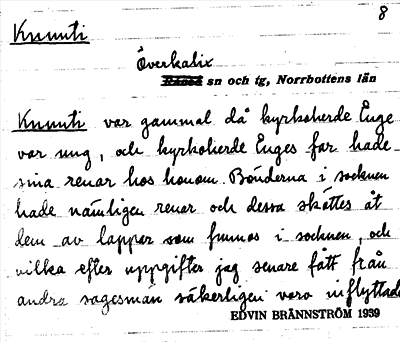 8
Knunti
Överkalix
sn och tg, Norrbottens län
Knunti var gammal då kyrkoherde Enge
var ung, och kyrkoherde Enges far hade
sina renar hos honom. Bönderna i socknen
hade nämligen renar och dessa sköttes åt
dem av lappar som funnos i socknen, och
vilka efter uppgifter jag senare fått från
andra sagesmän säkerligen voro inflyttade
EDVIN BRÄNNSTRÖM 1939